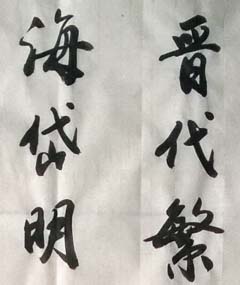 晋代繁
海岱明